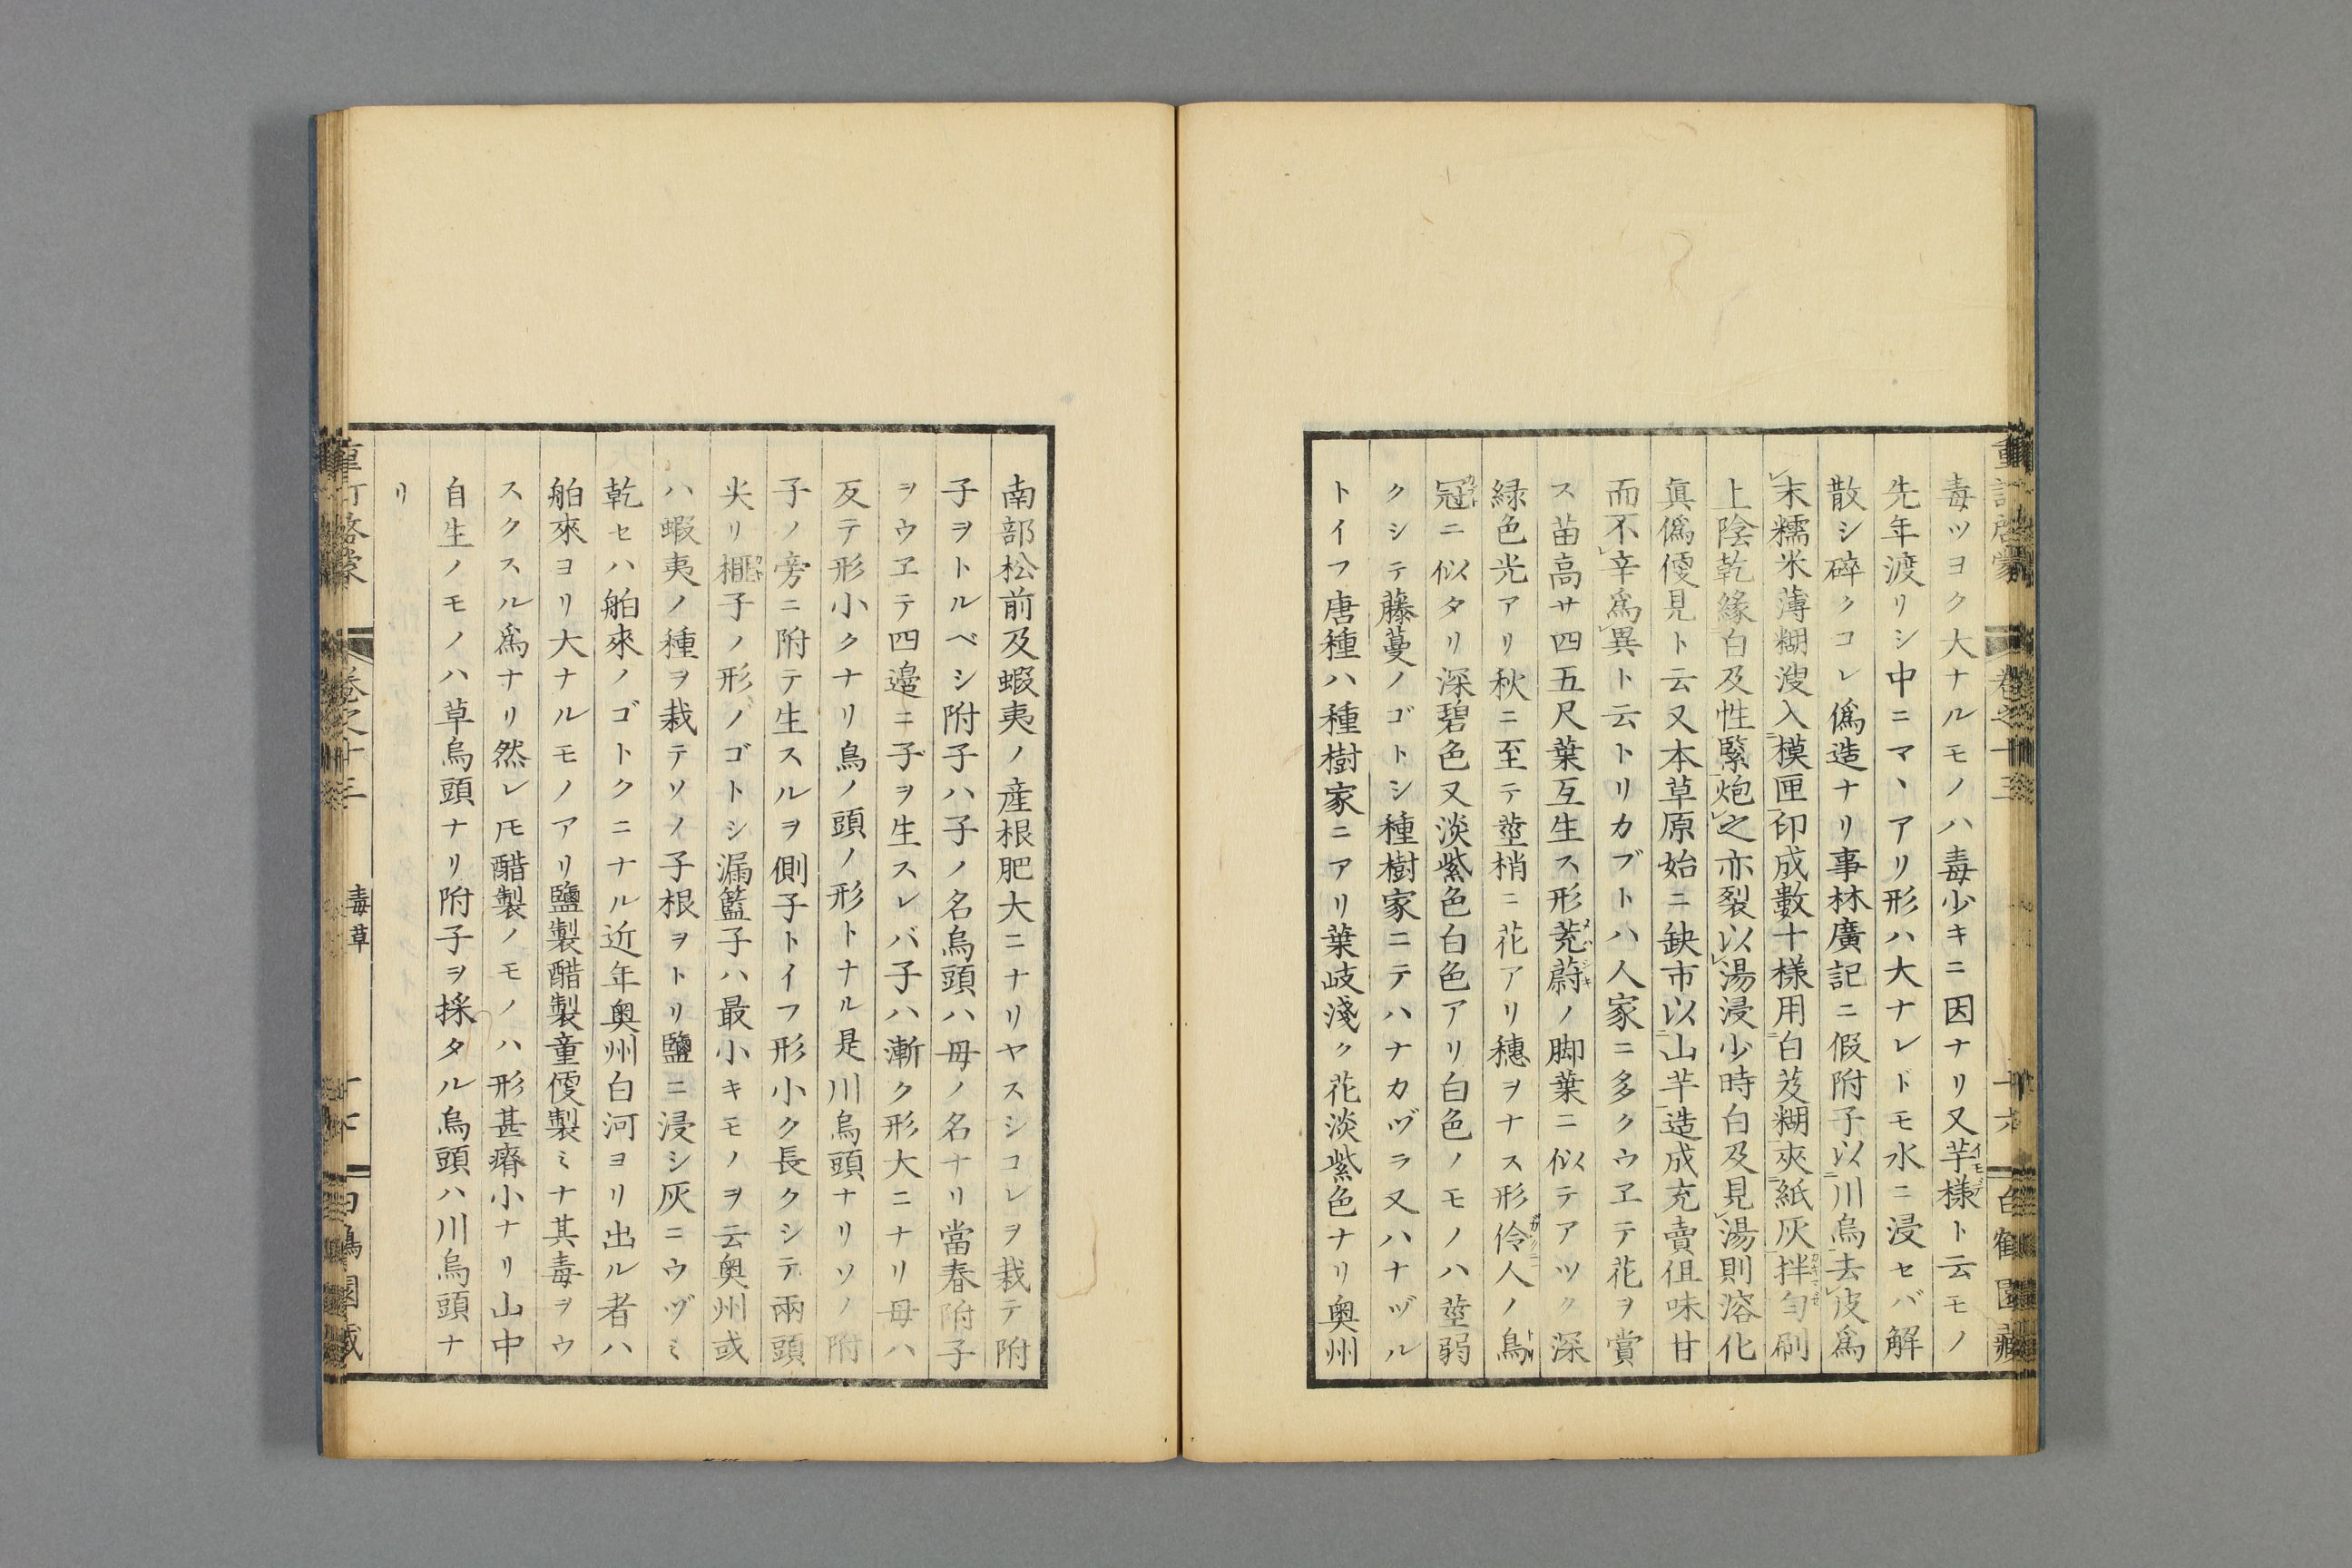 毒ツヨク大ナルモノハ毒少キニ因ナリ又芋様ト云モノ
先年渡リシ中ニマヽアリ形ハ大ナレドモ水ニ浸セバ解
散シ碎クコレ僞造ナリ事林廣記ニ假附子以川烏去皮爲
末糯米薄糊溲入模匣印成數十様用白芨糊夾紙灰拌勻刷
上陰乾緣白及性緊炮之亦裂以湯浸少時白及見湯則溶化
眞僞便見ト云又本草原始ニ缺市以山芋造成充賣但味甘
而不辛爲異ト云トリカブトハ人家ニ多クウヱテ花ヲ賞
ス苗高サ四五尺葉互生ス形茺蔚ノ脚葉ニ似テアツク深
緑色光アリ秋ニ至テ莖梢ニ花アリ穗ヲナス形伶人ノ鳥
冠ニ似タリ深碧色又淡紫色白色アリ白色ノモノハ莖弱
クシテ藤蔓ノゴトシ種樹家ニテハナカヅラ又ハナヅル
トイフ唐種ハ種樹家ニアリ葉岐淺ク花淡紫色ナリ奥州
南部松前及蝦夷ノ産根肥大ニナリヤスシコレヲ栽テ附
子ヲトルベシ附子ハ子ノ名烏頭ハ母ノ名ナリ當春附子
ヲウヱテ四邉ニ子ヲ生スレバ子ハ漸ク形大ニナリ母ハ
反テ形小クナリ鳥ノ頭ノ形トナル是川烏頭ナリソノ附
子ノ旁ニ附テ生スルヲ側子トイフ形小ク長クシテ兩頭
尖リ榧子ノ形ノゴトシ漏籃子ハ最小キモノヲ云奥州或
ハ蝦夷ノ種ヲ栽テソノ子根ヲトリ鹽ニ浸シ灰ニウヅミ
乾セハ舶來ノゴトクニナル近年奥州白河ヨリ出ル者ハ
舶來ヨリ大ナルモノアリ鹽製醋製童便製ミナ其毒ヲウ
スクスル爲ナリ然レ𪜈醋製ノモノハ形甚瘠小ナリ山中
自生ノモノハ草烏頭ナリ附子ヲ採タル烏頭ハ川烏頭ナ
リ
毒草